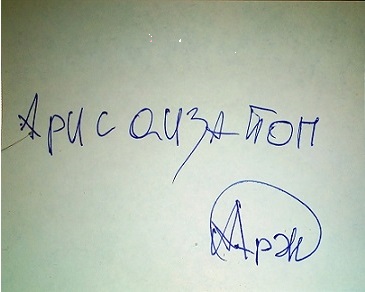 Арисаизатон
Арж